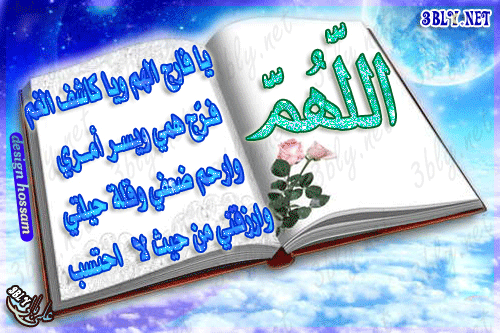 3BLY.NET
اللَّهُمَّ
يا فارج الهم ويا كاشف الغم
فرج همي ويسر أمري
وارحم ضعفي وقلة حيلتي
وارزقني من حيث لا احتسب
design hossam
3BLY.NET